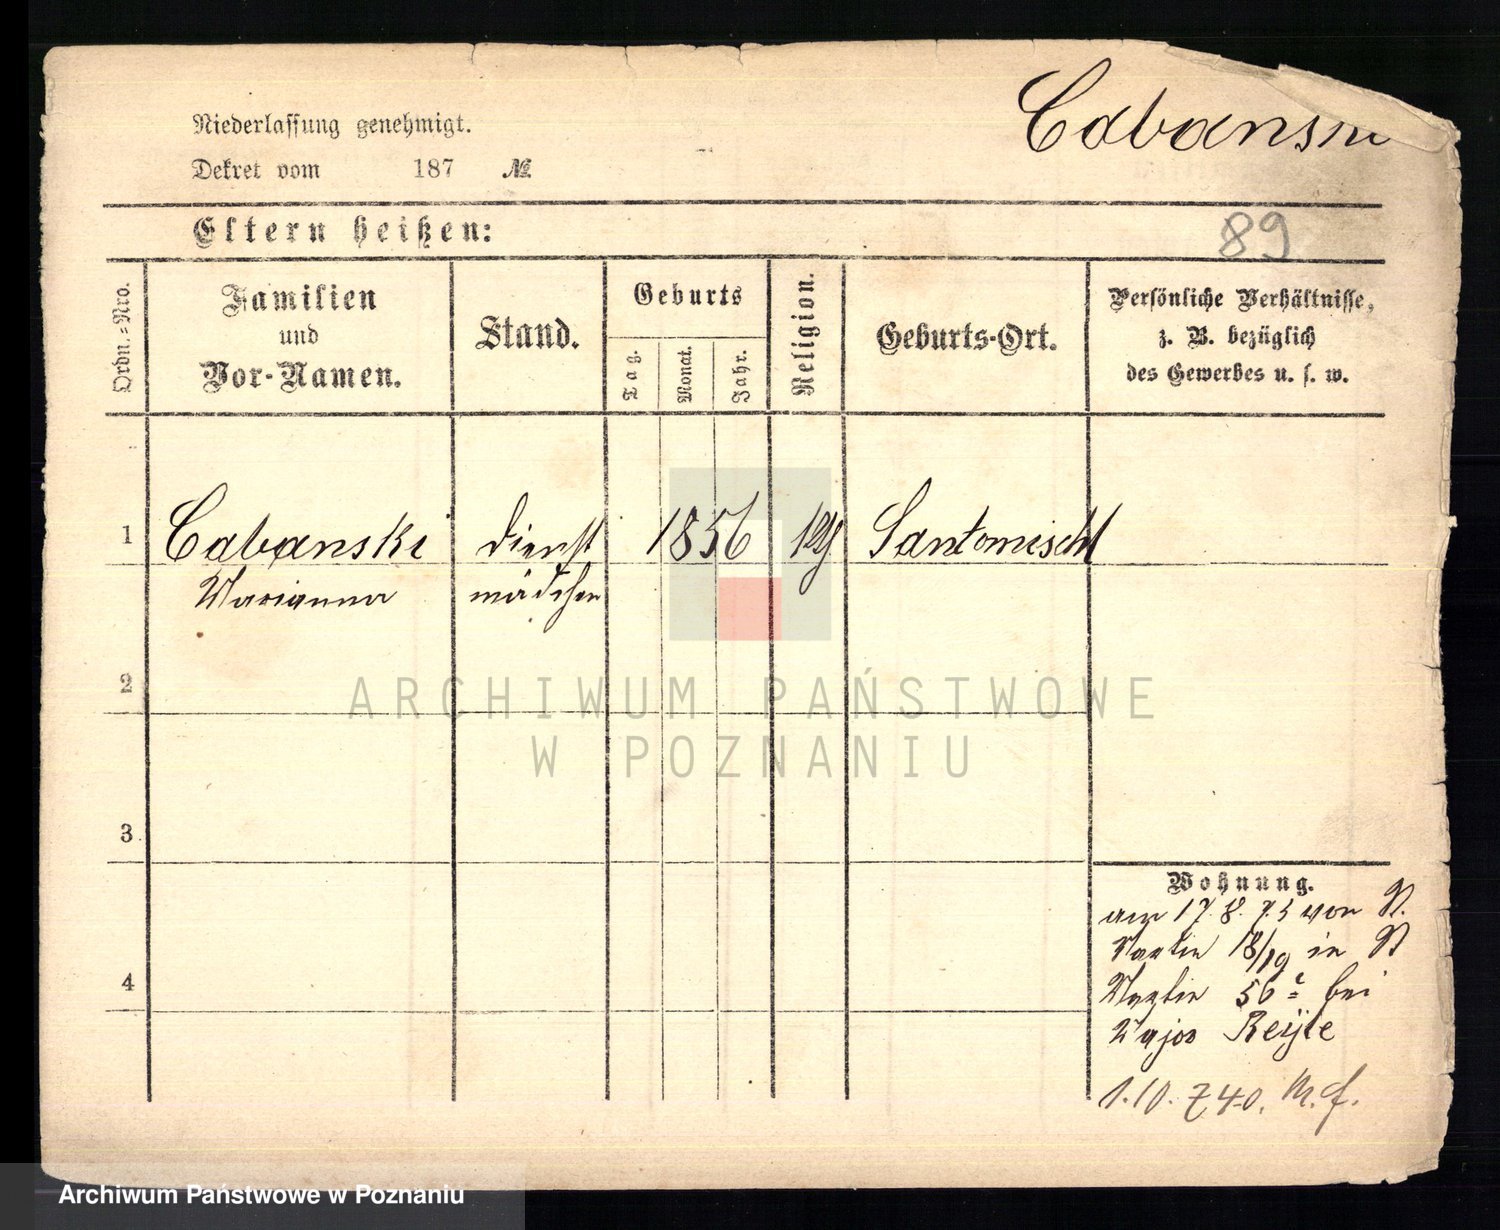 Cabanski
Niederlassung genehmigt.
Dekret vom 187 №
Eltern heißen:
89
Ordn.=Nro.
Familien
und
Vor-Namen.
Stand.
Geburts
Tag.
Monat.
Jahr.
Religion.
Geburts-Ort.
Persönliche Verhältnisse,
z. B. bezüglich
des Gewerbes u. s. w.
1 Cabanski dienst 1856 Santomischl
Marianna mädchen
2
3
4
Wohnung.
am 17. 8. 75 von St.
Martin 18/19 in St
Martin 56 bei
Major
1.10.
ARCHIWUM PAŃSTWOWE
W POZNANIU
Archiwum Państwowe w Poznaniu